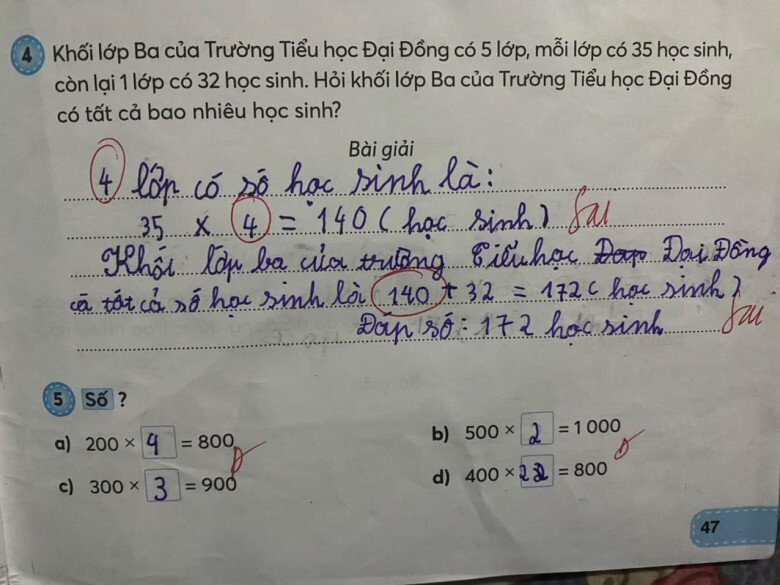 4 Khối lớp Ba của Trường Tiểu học Đại Đồng có 5 lớp, mỗi lớp có 35 học sinh,
còn lại 1 lớp có 32 học sinh. Hỏi khối lớp Ba của Trường Tiểu học Đại Đồng
có tất cả bao nhiêu học sinh?
Bài giải
4 lớp có số học sinh là:
35 x 4 = 140 ( học sinh ) Sai
Khối lớp ba của trường Tiểu học Đap Đại Đồng
có tất cả số học sinh là 140 + 32 = 172 ( học sinh )
Đáp số : 172 học sinh Sai
5 Số ?
a) 200 × 4 = 800
b) 500 × 2 = 1 000
c) 300 × 3 = 900
d) 400 × 2 = 800
47